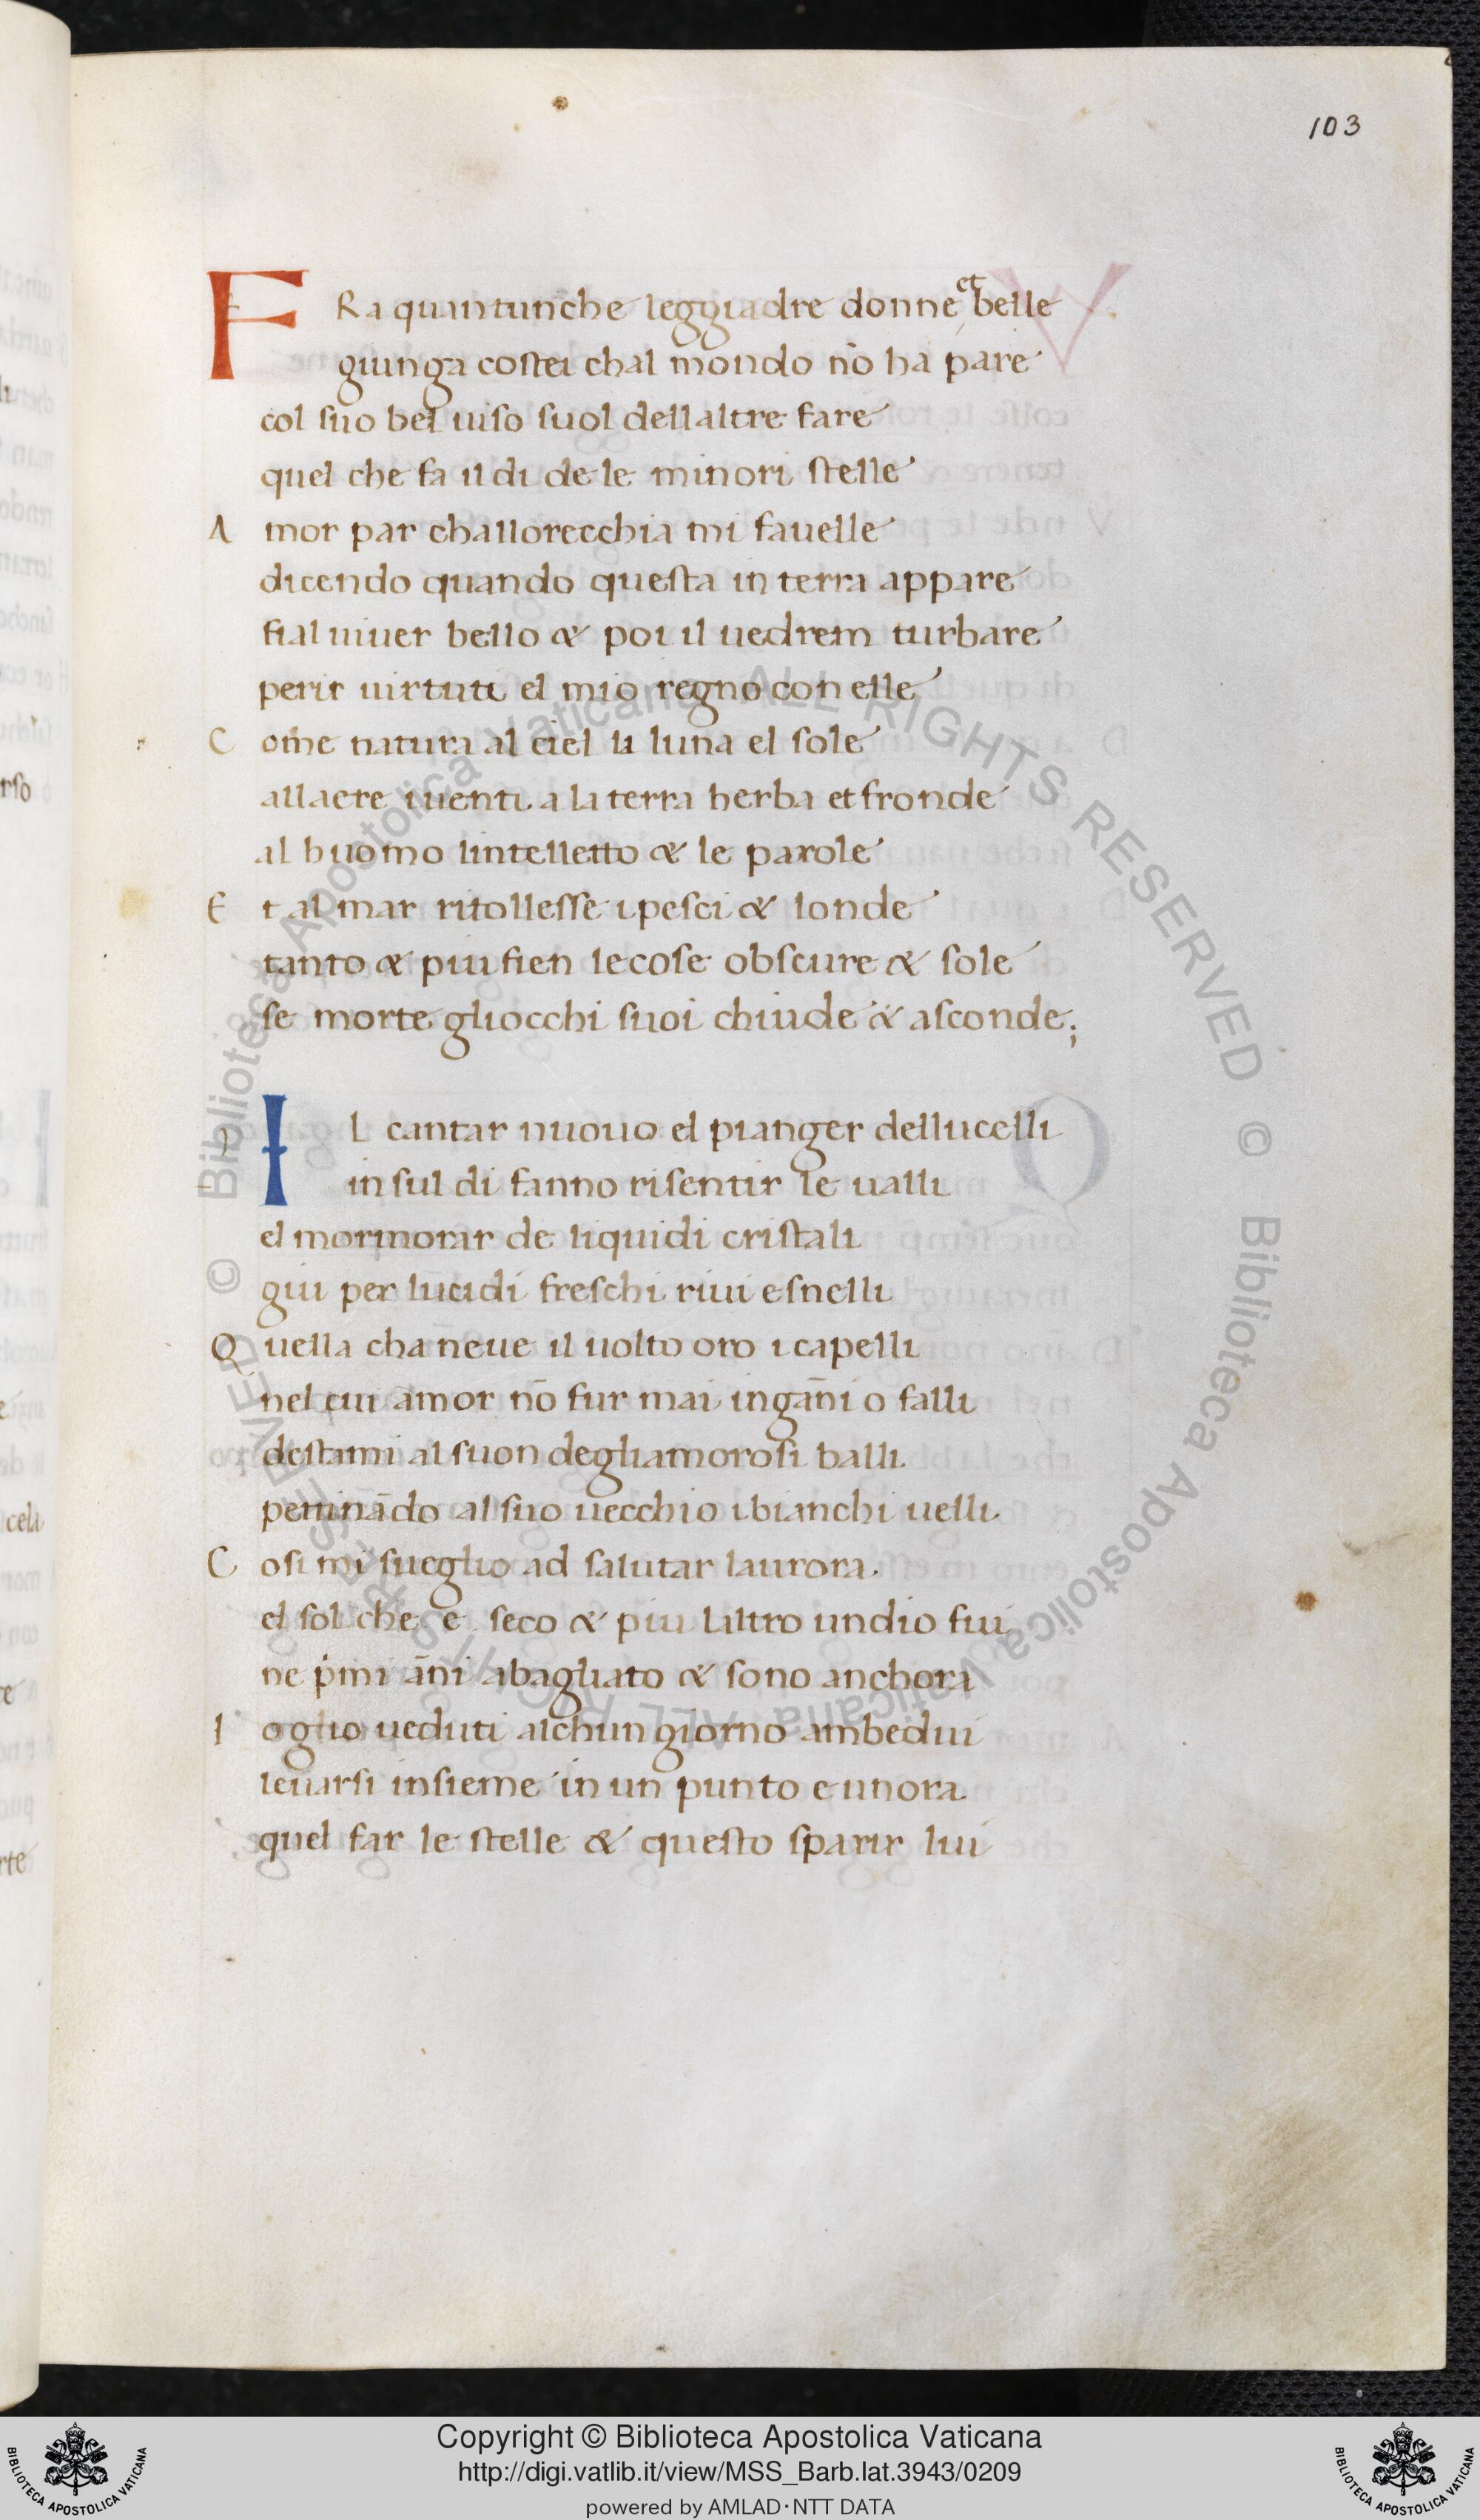 103
FRa quantunche leggiadre donne et belle
giunga costei chal mondo nō ha pare
col suo bel uiso suol dellaltre fare
quel che fa il di de le minori stelle
Amor par challorecchia mi fauelle
dicendo quando questa in terra appare
fial uiuer bello & poi il uedrem turbare
perir uirtuti el mio regno con elle
Come natura al ciel la luna el sole
allaere i uenti a la terra herba et fronde
al huomo lintelletto & le parole
Et al mar ritollesse i pesci & londe
tanto & piu fien le cose obscure & sole
se morte gliocchi suoi chiude & asconde;
IL cantar nuouo el pianger dellucelli
in sul di fanno risentir le ualli
el mormorar de liquidi cristali
giu per lucidi freschi riui e snelli
Quella cha neue il uolto oro i capelli
nel cui amor nō fur mai ingāni o falli
destami al suon degliamorosi balli
pettinādo al suo uecchio i bianchi uelli
Cosi mi sueglio ad salutar laurora.
el sol che e seco & piu laltro undio fui
ne pimi āni abagliato & sono anchora
I oglio ueduti alchun giorno ambedui
leuarsi insieme in un punto e unora
quel far le stelle & questo sparir lui
© Biblioteca Apostolica Vaticana ALL RIGHTS RESERVED
© Biblioteca Apostolica Vaticana ALL RIGHTS RESERVED
Copyright © Biblioteca Apostolica Vaticana
http://digi.vatlib.it/view/MSS_Barb.lat.3943/0209
powered by AMLAD·NTT DATA
BIBLIOTECA APOSTOLICA VATICANA
BIBLIOTECA APOSTOLICA VATICANA